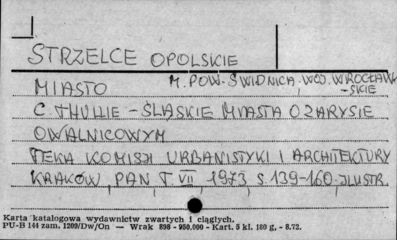 STRZELCE OPOLSKIE
MIASTO M. POW. ŚWIDNICA, WOJ. WROCŁAW-
-SKIE
C THULLIE - ŚLĄSKIE MIASTA O ZARYSIE
OWALNICOWYM
TEKA KOMISJI URBANISTYKI I ARCHITEKTURY
KRAKÓW, PAN T VII, 1973, S 139-160, ILUSTR.
Karta katalogowa wydawnictw zwartych i ciągłych.
PU-B 144 zam. 1209/Dw/On — Wrak 898 - 950.000 - Kart. 5 kl. 180 g, - 8.72.